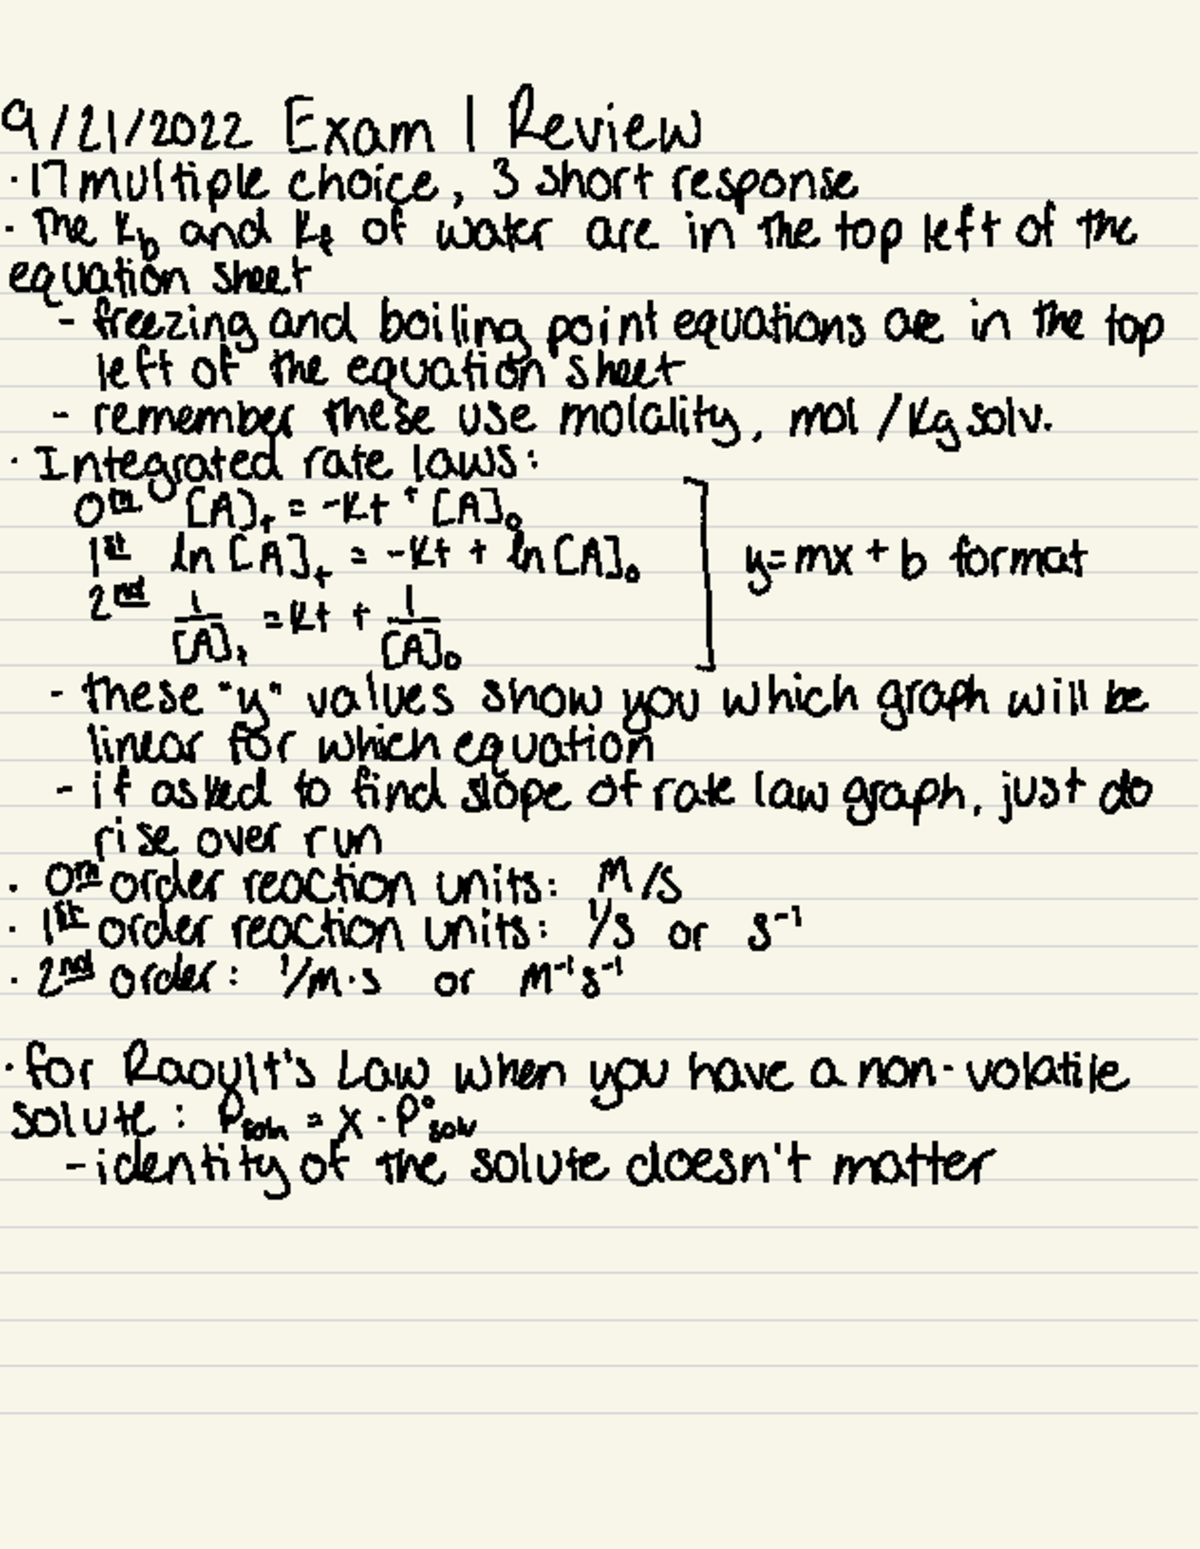 9/21/2022 Exam 1 Review
· 17 multiple choice, 3 short response
· The Kb and Kf of water are in the top left of the
equation sheet
- freezing and boiling point equations are in the top
left of the equation sheet
- remember these use molality, mol/kg solv.
· Integrated rate laws:
0th [A]t = -kt + [A]0
1st ln[A]t = -kt + ln[A]0 ] y=mx+b format
2nd 1/[A]t = kt + 1/[A]0
- these "y" values show you which graph will be
linear for which equation
- if asked to find slope of rate law graph, just do
rise over run
· 0th order reaction units: M/s
· 1st order reaction units: 1/s or s⁻¹
· 2nd order: 1/M·s or M⁻¹s⁻¹
· for Raoult's Law when you have a non-volatile
solute: Psoln = X · P°solv
- identity of the solute doesn't matter